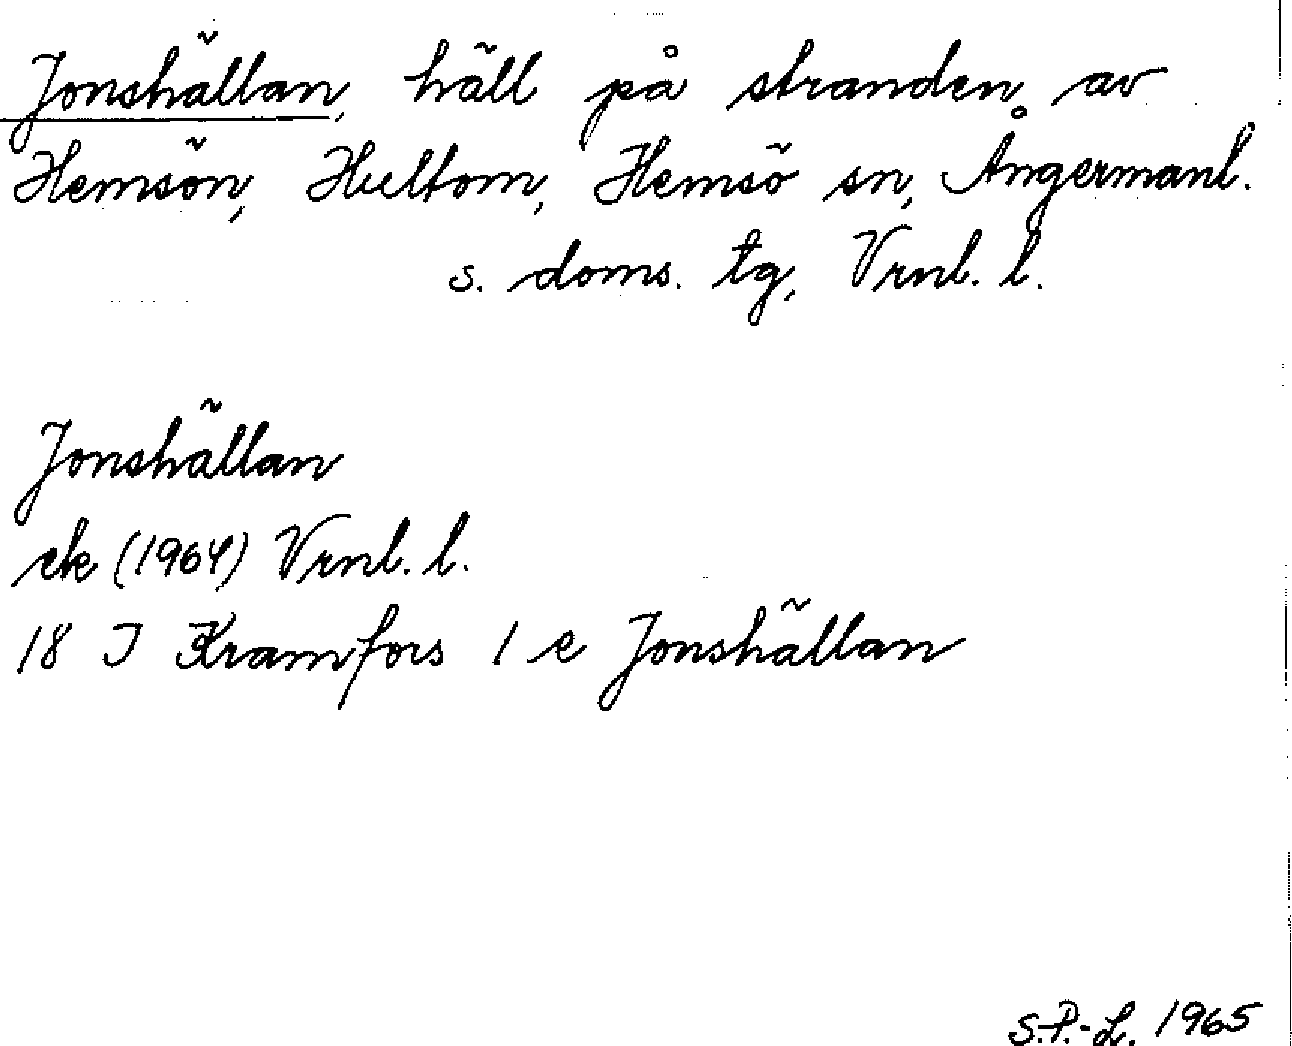 Jonshällan, häll på stranden av
Hemsön, Hultom, Hemsö sn, Ångermanl.
s. doms. tg, Vrnl. l.
Jonshällan
ek (1964) Vrnl. l.
18 J Kramfors 1 e Jonshällan
S.P.-L. 1965